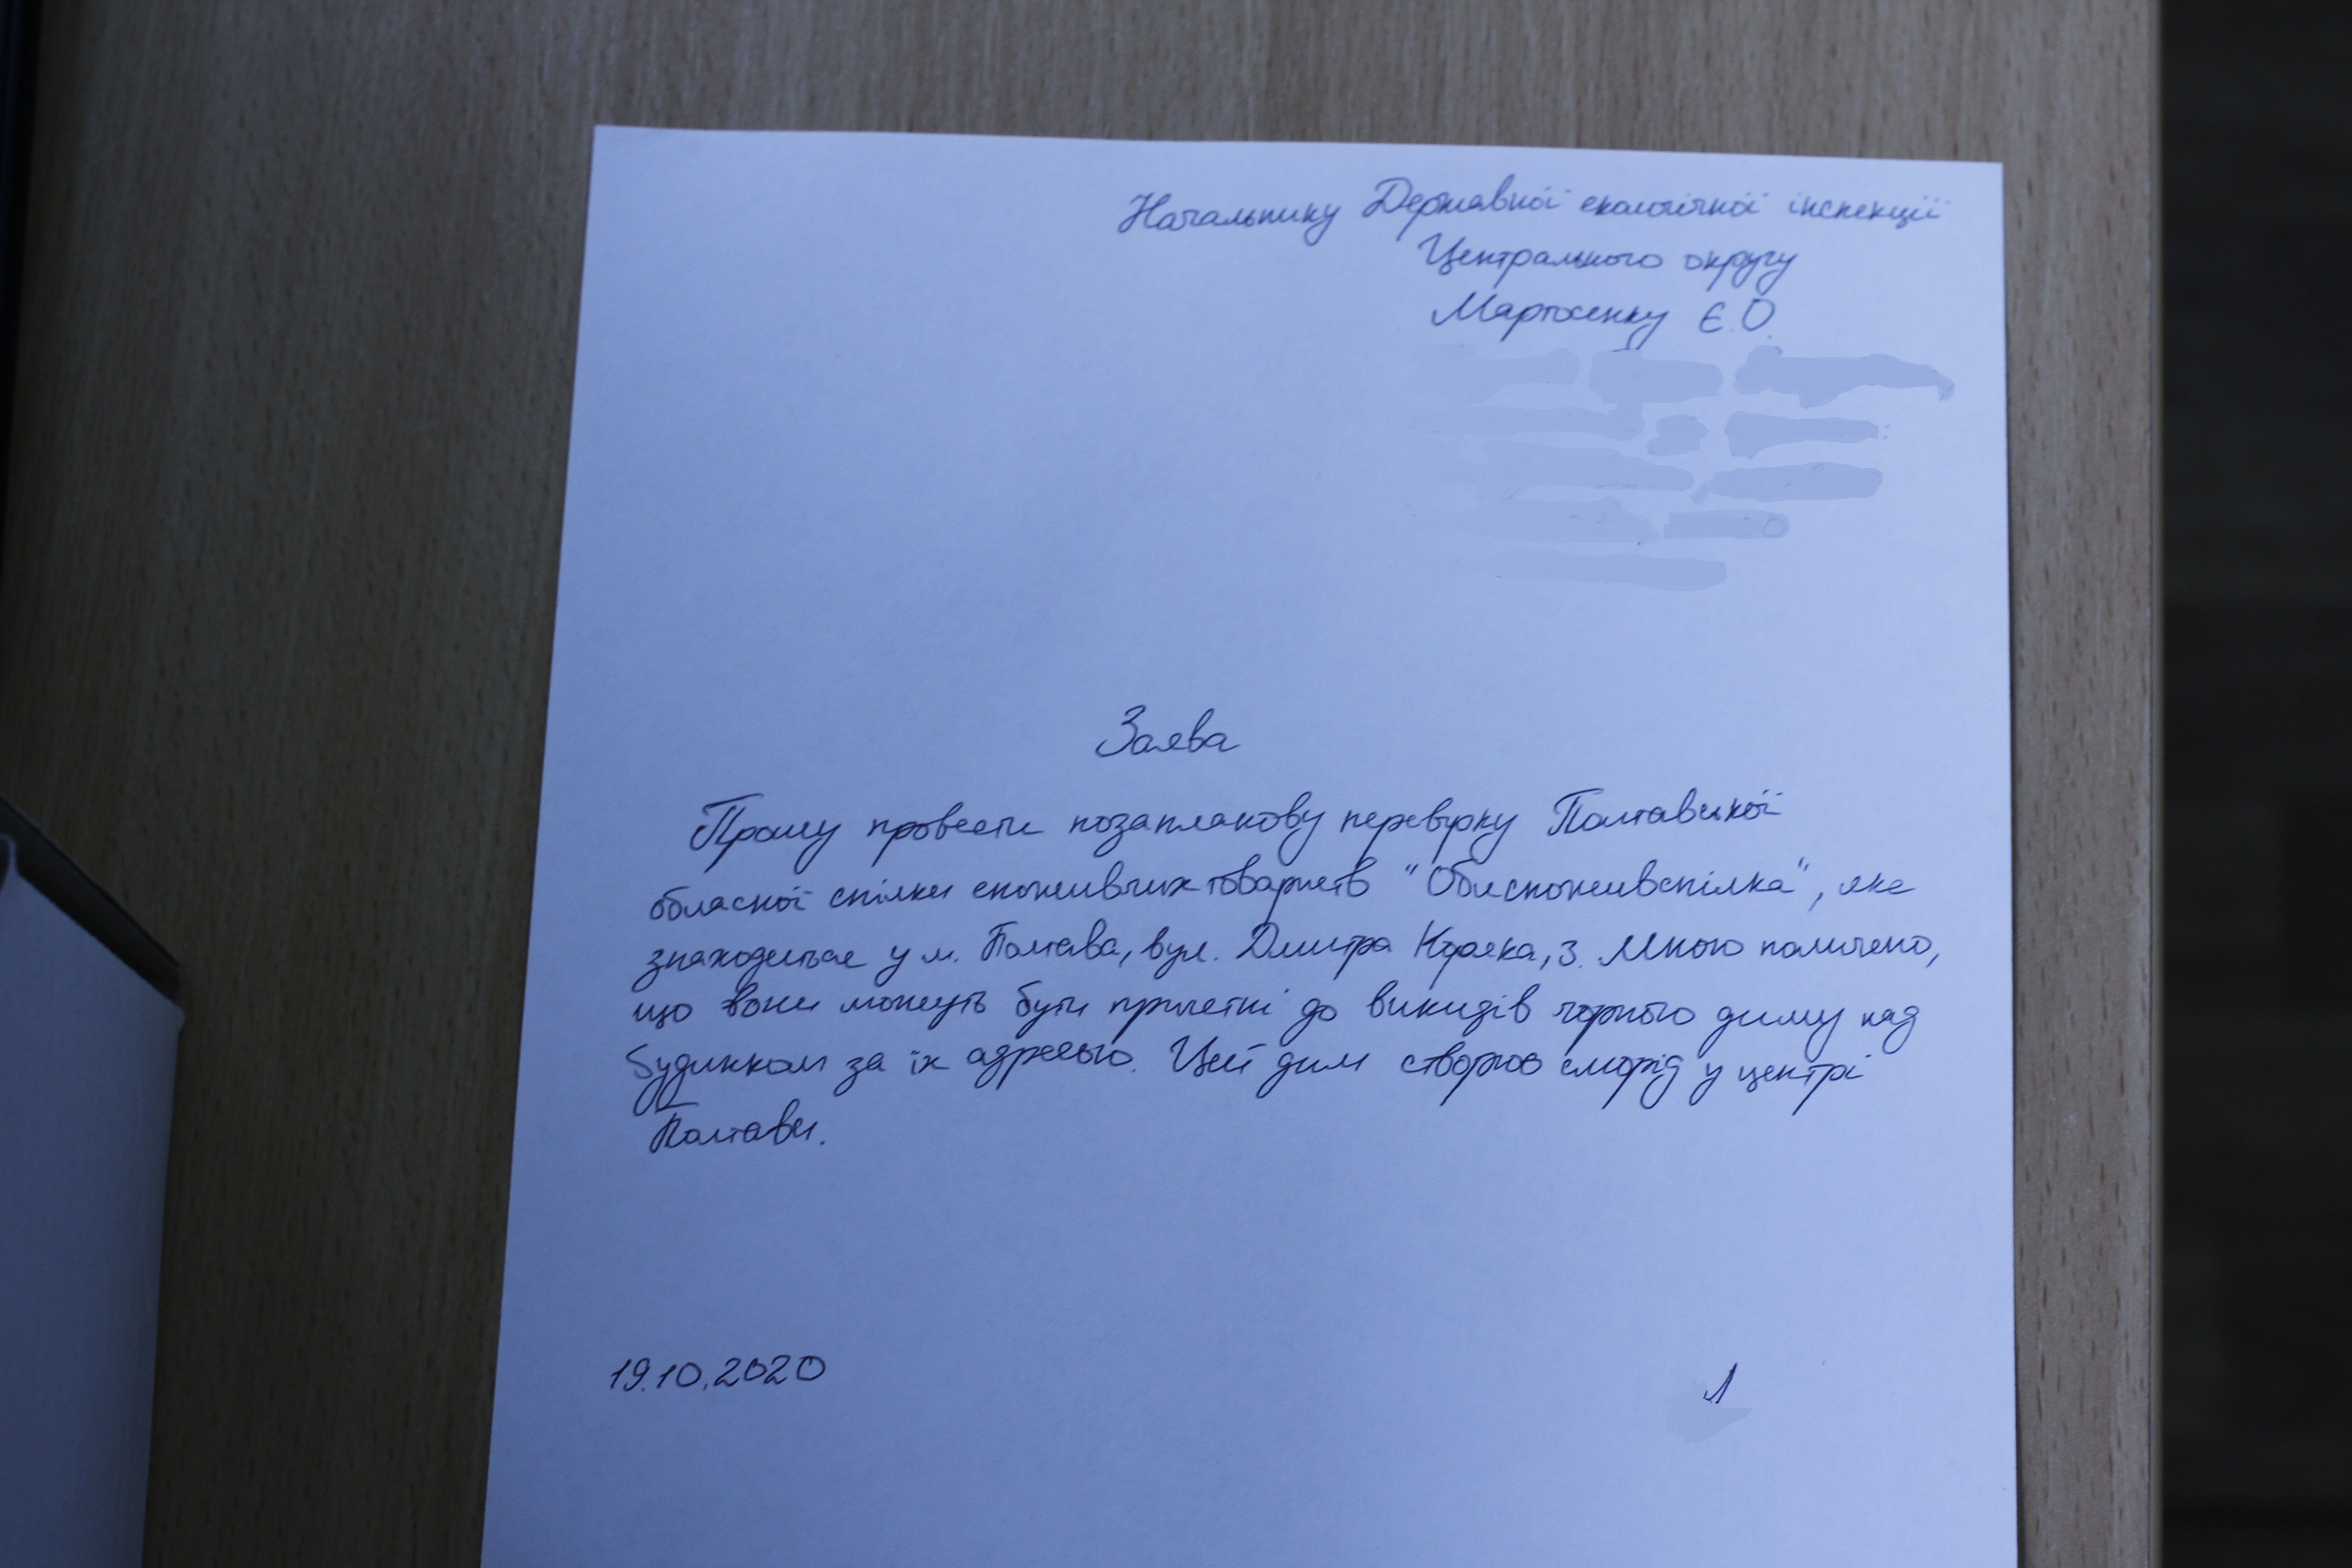 Начальнику Державної екологічної інспекції
Центрального округу
Мартосенку Є.О.
Заява
Прошу провести позапланову перевірку Полтавської
обласної спілки споживчих товариств "Облспоживспілка", яке
знаходиться у м. Полтава, вул. Дмитра Коряка, 3. Мною помічено,
що вони можуть бути причетні до викидів чорного диму над
будинком за їх адресою. Цей дим створює сморід у центрі
Полтави.
19.10.2020